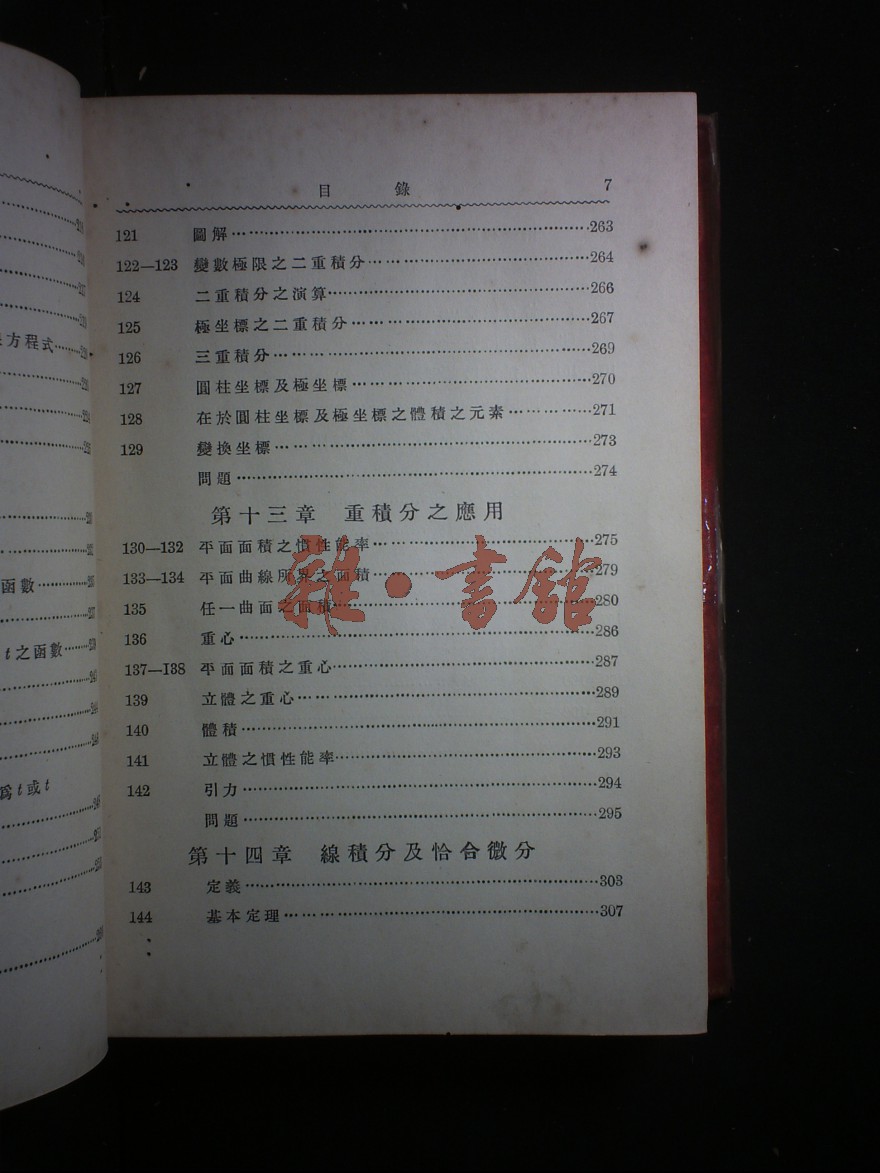 方程式
函數
t之函數
爲t或t
目錄 7
121 圖解 263
122—123 變數極限之二重積分 264
124 二重積分之演算 266
125 極坐標之二重積分 267
126 三重積分 269
127 圓柱坐標及極坐標 270
128 在於圓柱坐標及極坐標之體積之元素 271
129 變換坐標 273
問題 274
第十三章 重積分之應用
130—132 平面面積之慣性能率 275
133—134 平面曲線所界之面積 279
135 任一曲面之面積 280
136 重心 286
137—138 平面面積之重心 287
139 立體之重心 289
140 體積 291
141 立體之慣性能率 293
142 引力 294
問題 295
第十四章 線積分及恰合微分
143 定義 303
144 基本定理 307
雜·書館